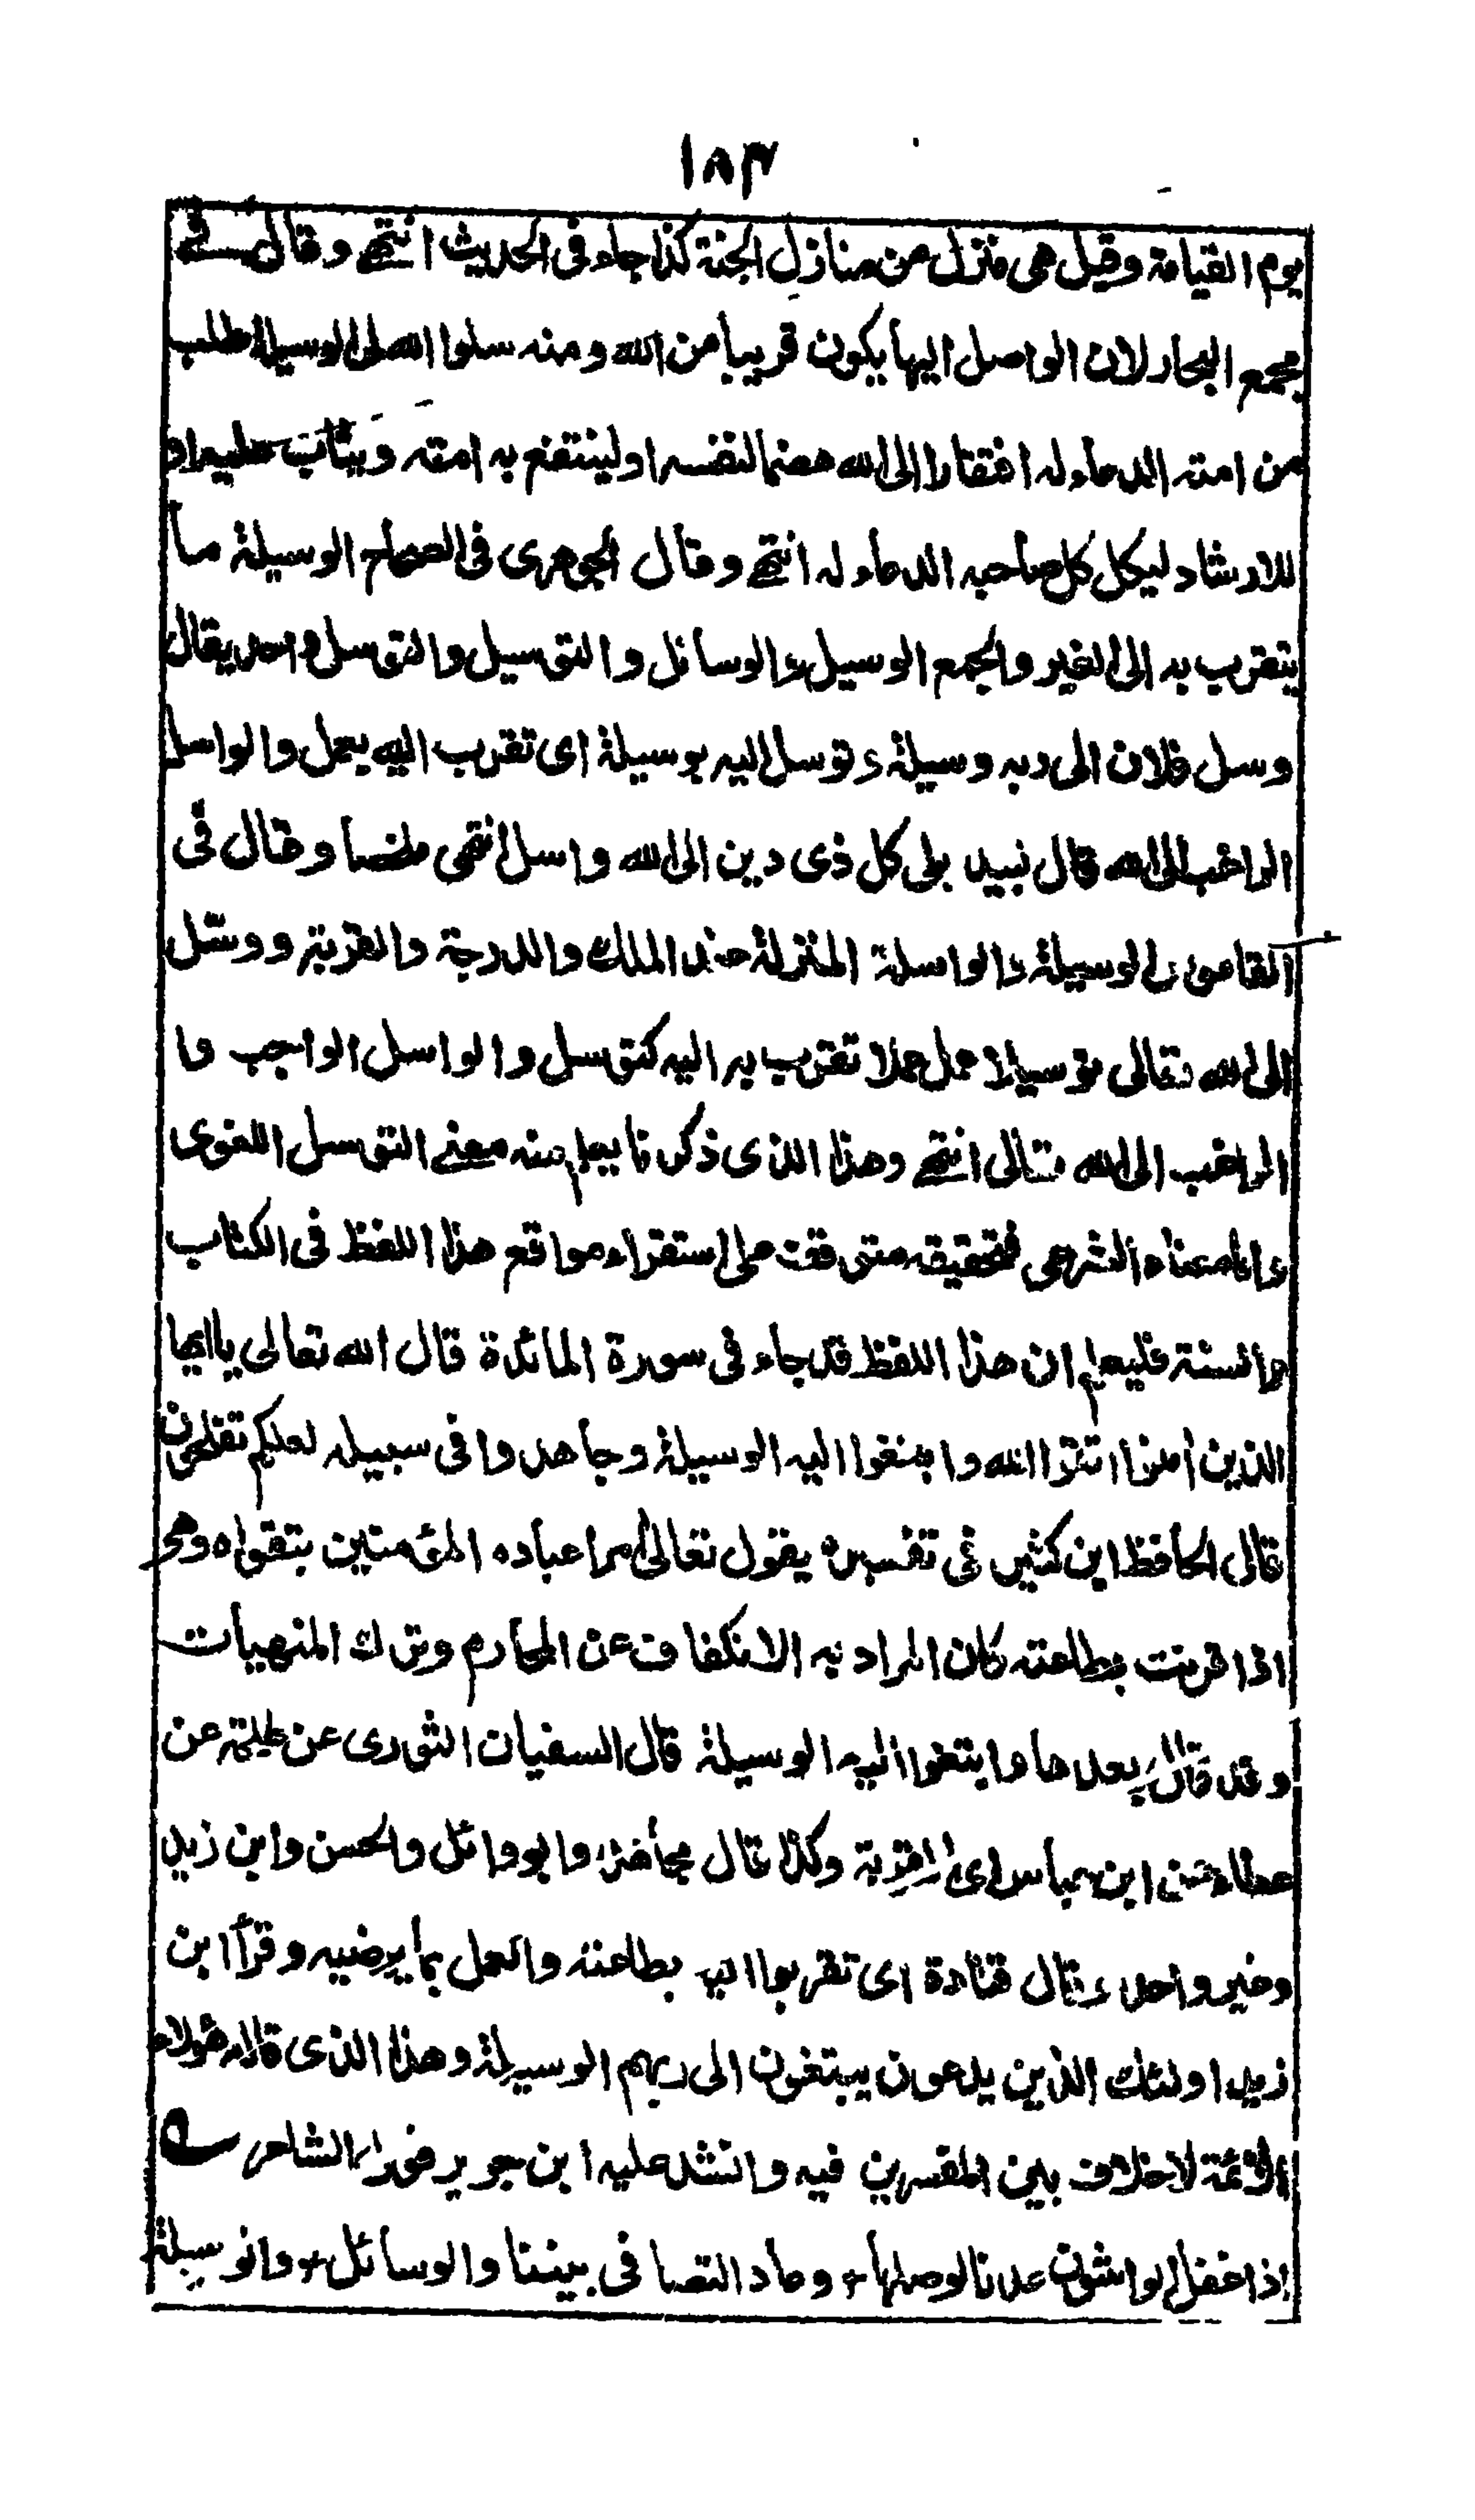 ١٨٣
يوم القيامة وقيل هى منزل من منازل الجنة كذا جاء فى الحديث انتهى وقال فى
مجمع البحار لان الواصل اليها يكون قريبا من الله ومنه سلوا الله لى الوسيلة طلب
من امته الدعاء له افتقارا الى الله هضما لنفسه او لينتفع به امته ويثاب عليه او
للارشاد ليكل كل صاحبه الدعاء له انتهى وقال الجوهرى فى الصحاح الوسيلة ما
يتقرب به الى الغير والجمع الوسيل والوسائل والتوسيل والتوسل واحد يقال
وسل فلان الى ربه وسيلة وتوسل اليه بوسيلة اى تقرب اليه بعمل والواسل
الراغب الى الله قال لبيد بلى كل ذى دين الى الله واسل انتهى ملخصا وقال فى
القاموس الوسيلة والواسلة المنزلة عند الملك والدرجة والقربة ووسّل
الى الله تعالى توسيلا عمل عملا تقرب به اليه كتوسل والواسل الواجب وا
الراغب الى الله تعالى انتهى وهذا الذى ذكرنا يعلم منه معنى التوسل اللغوى
واما معناه الشرعى فتحقيقه متوقف على استقراء مواقع هذا اللفظ فى الكتاب
والسنة فليعلم ان هذا اللفظ قد جاء فى سورة المائدة قال الله تعالى ياايها
الذين أمنوا اتقوا الله وابتغوا اليه الوسيلة وجاهدوا فى سبيله لعلكم تفلحون
قال الحافظ ابن كثير فى تفسيره يقول تعالى امرا عباده المؤمنين بتقواه وهى
اذا قرنت بطاعته كان المراد به الانكفاف عن المحارم وترك المنهيات
وقد قال بعدها وابتغوا اليه الوسيلة قال السفيان الثورى عن طلحة عن
عطاء عن ابن عباس اى القربة وكذا قال مجاهد وابو وائل والحسن وابن زيد
وغير واحد وقال قتادة اى تقربوا اليه بطاعته والعمل بما يرضيه وقرأ ابن
زيد اولئك الذين يدعون يبتغون الى ربهم الوسيلة وهذا الذى قاله هؤلاء
الائمة لا خلاف بين المفسرين فيه وانشد عليه ابن جرير قول الشاعر
اذا غفل الواشون عدنا لوصلها ، وعاد التصافى بيننا والوسائل ، والوسيلة